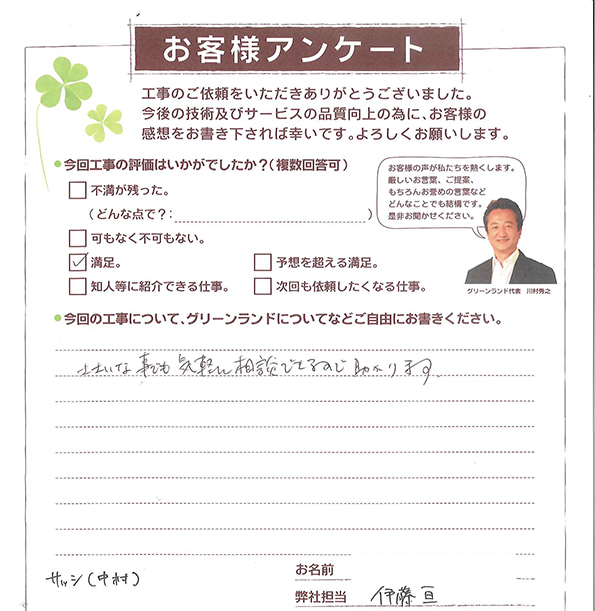 お客様アンケート
工事のご依頼をいただきありがとうございました。
今後の技術及びサービスの品質向上の為に、お客様の
感想をお書き下されば幸いです。よろしくお願いします。
今回工事の評価はいかがでしたか？（複数回答可）
不満が残った。
（どんな点で？：　）
可もなく不可もない。
満足。
予想を超える満足。
知人等に紹介できる仕事。
次回も依頼したくなる仕事。
お客様の声が私たちを熱くします。
厳しいお言葉、ご提案、
もちろんお誉めの言葉など
どんなことでも結構です。
是非お聞かせください。
グリーンランド代表　川村秀之
今回の工事について、グリーンランドについてなどご自由にお書きください。
な事でも気軽に相談できるので助かります。
お名前
サッシ(中村)
弊社担当 伊藤亘